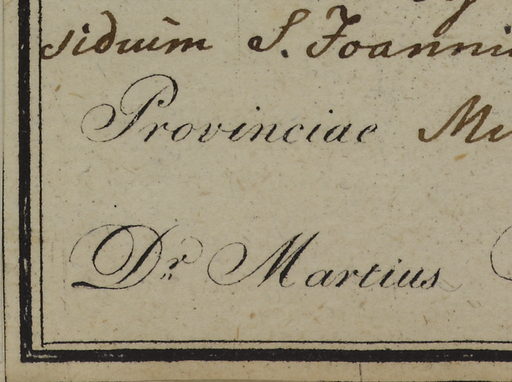 siduum S. Joanni
Provinciae
Dr. Martius